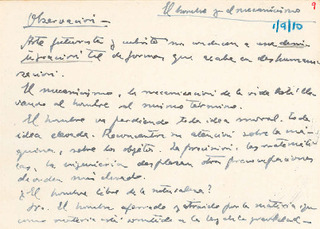 El hombre y el mecanicismo
9
1/9/10
Observación -
Arte futurista y cubista nos conducen a una desin-
tegración tal de formas que acaba en deshumani-
zación.
El mecanicismo, la mecanización de la vida está lle-
vando al hombre al mismo término.
El hombre va perdiendo toda idea moral, toda
idea elevada. Reconcentra su atención sobre la má-
quina, sobre los objetos. La precisión, las matemáti-
cas, la ingeniería desplazan otras preocupaciones
de orden más elevado.
¿El hombre libre de la naturaleza?
No. El hombre aferrado y atraído por la materia, que
como materia está sometido a la ley de la gravedad -